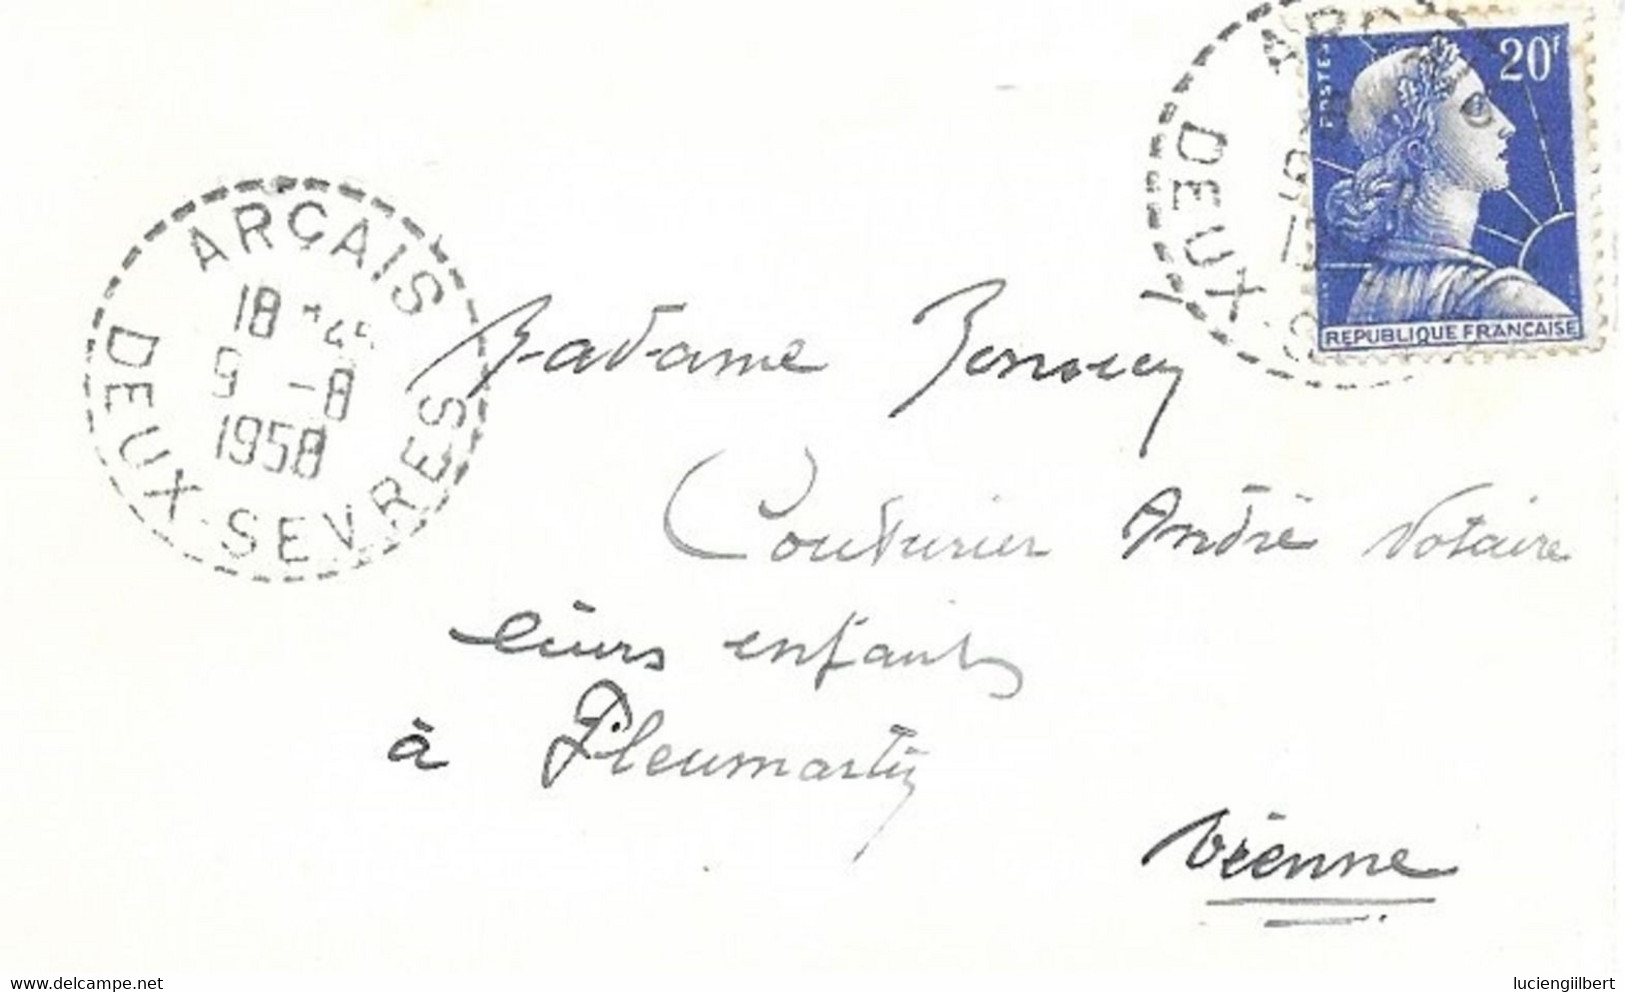 ARÇAIS
18 H 45
9 -8
1958
DEUX-SEVRES
POSTES
20F
REPUBLIQUE FRANÇAISE
DEUX-S
Madame
Couturier André Notaire
leurs enfants
à Pleumartin
Vienne
www.delcampe.net
luciengilbert